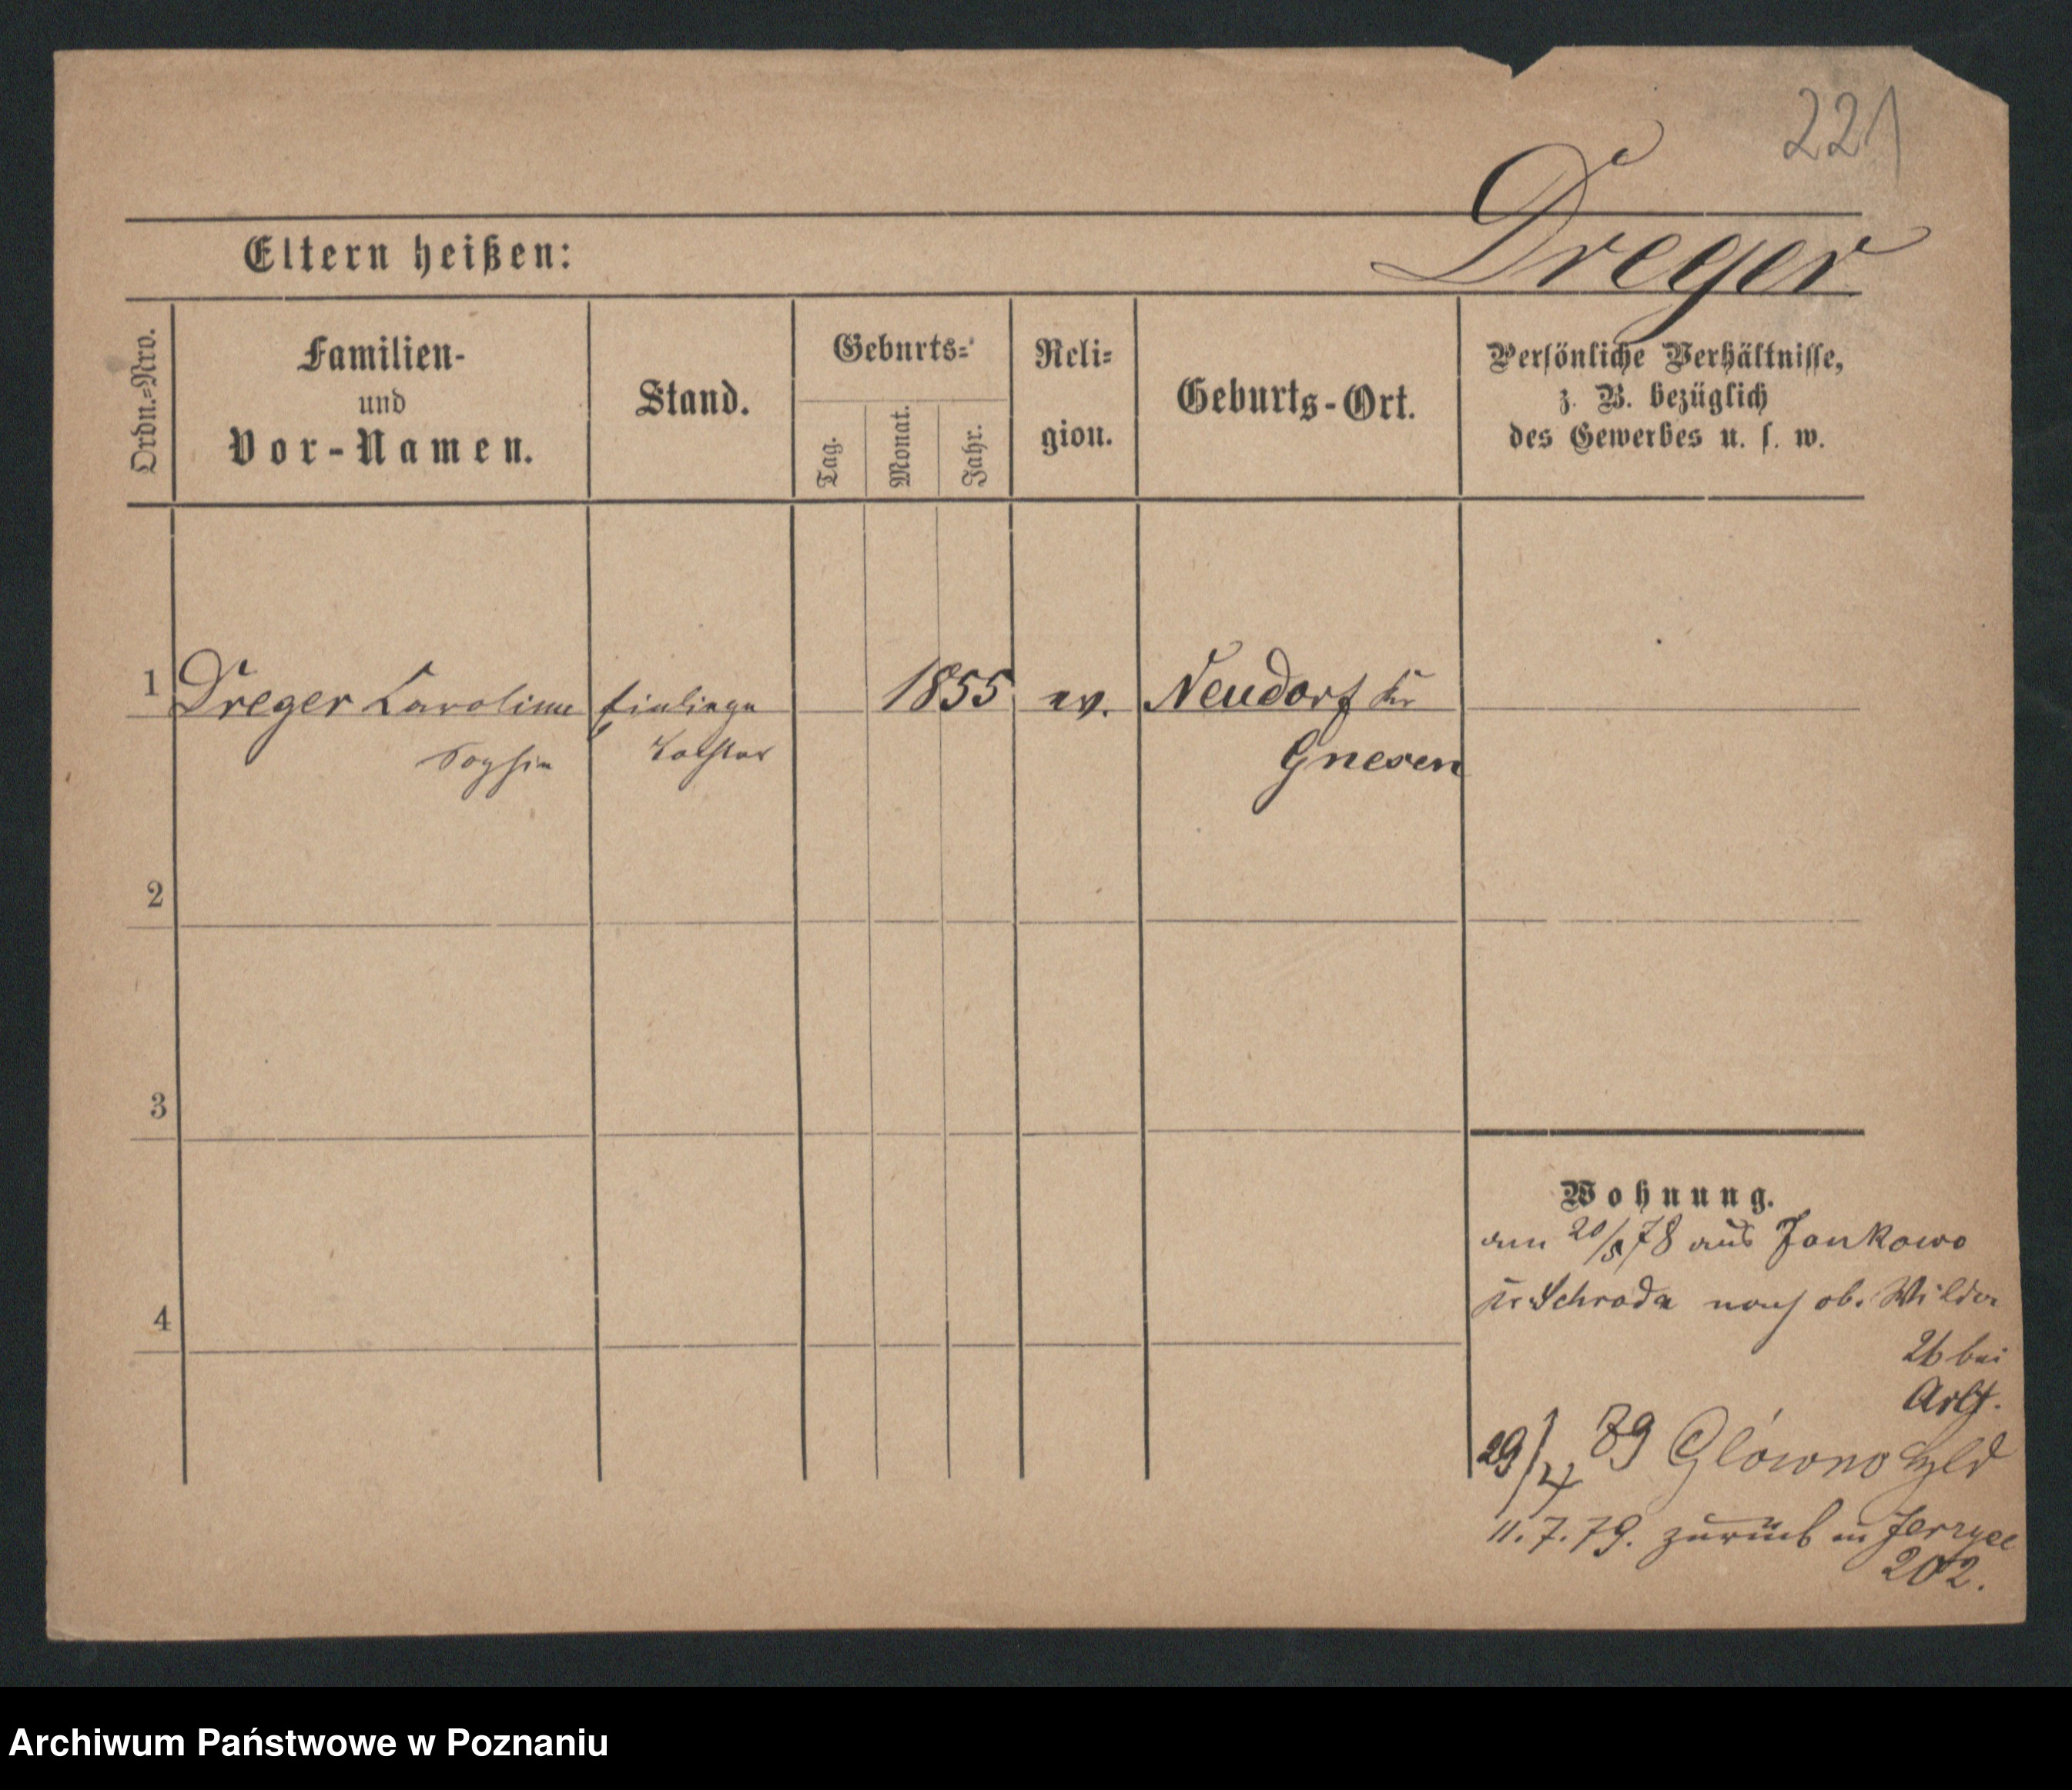 221
Dreger
Eltern heißen:
Ordn.=Nro.
Familien-
und
Vor-Namen.
Stand.
Geburts=
Tag.
Monat.
Jahr.
Reli=
gion.
Geburts-Ort.
Persönliche Verhältnisse,
z. B. bezüglich
des Gewerbes u. s. w.
1 Dreger Caroline 1855 ev. Neudorf Kr
Sophie Tochter Gnesen
2
3
4
Wohnung.
am 20/5 78 aus Jankowo
Kr Schroda nach ob. Wilda
26 bei
29/4 79 Glówno
11.7.79. zurück in Jerzyce
202.
Archiwum Państwowe w Poznaniu